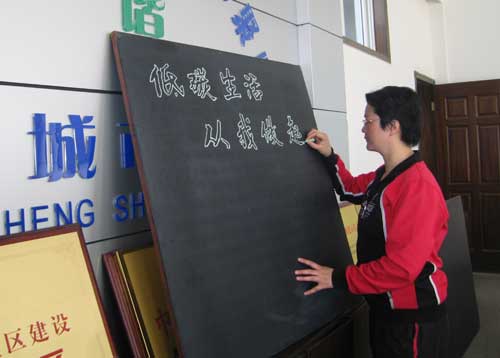 城
HENG SH
低碳生活
从我做起
区建设